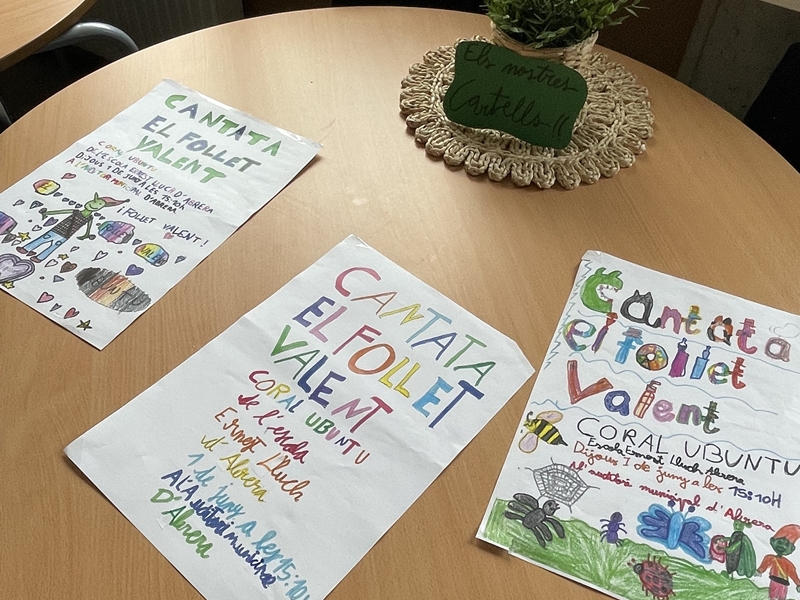 Els nostres
Cartells!!
CANTATA
EL FOLLET
VALENT
CORAL UBUNTU
DE L'ESCOLA ERNEST LLUCH D'ABRERA
DIJOUS 1 DE JUNY A LES 15:10H
A L'AUDITORI MUNICIPAL D'ABRERA
¡FOLLET VALENT!
CANTATA
EL FOLLET
VALENT
CORAL UBUNTU
de l'escola
Ernest Lluch
d'Abrera
1 de juny a les 15:10h
A l'Auditori municipal
D'Abrera
Cantata
el follet
Valent
CORAL UBUNTU
Escola Ernest Lluch Abrera
Dijous 1 de juny a les 15:10H
Al auditori municipal d'Abrera